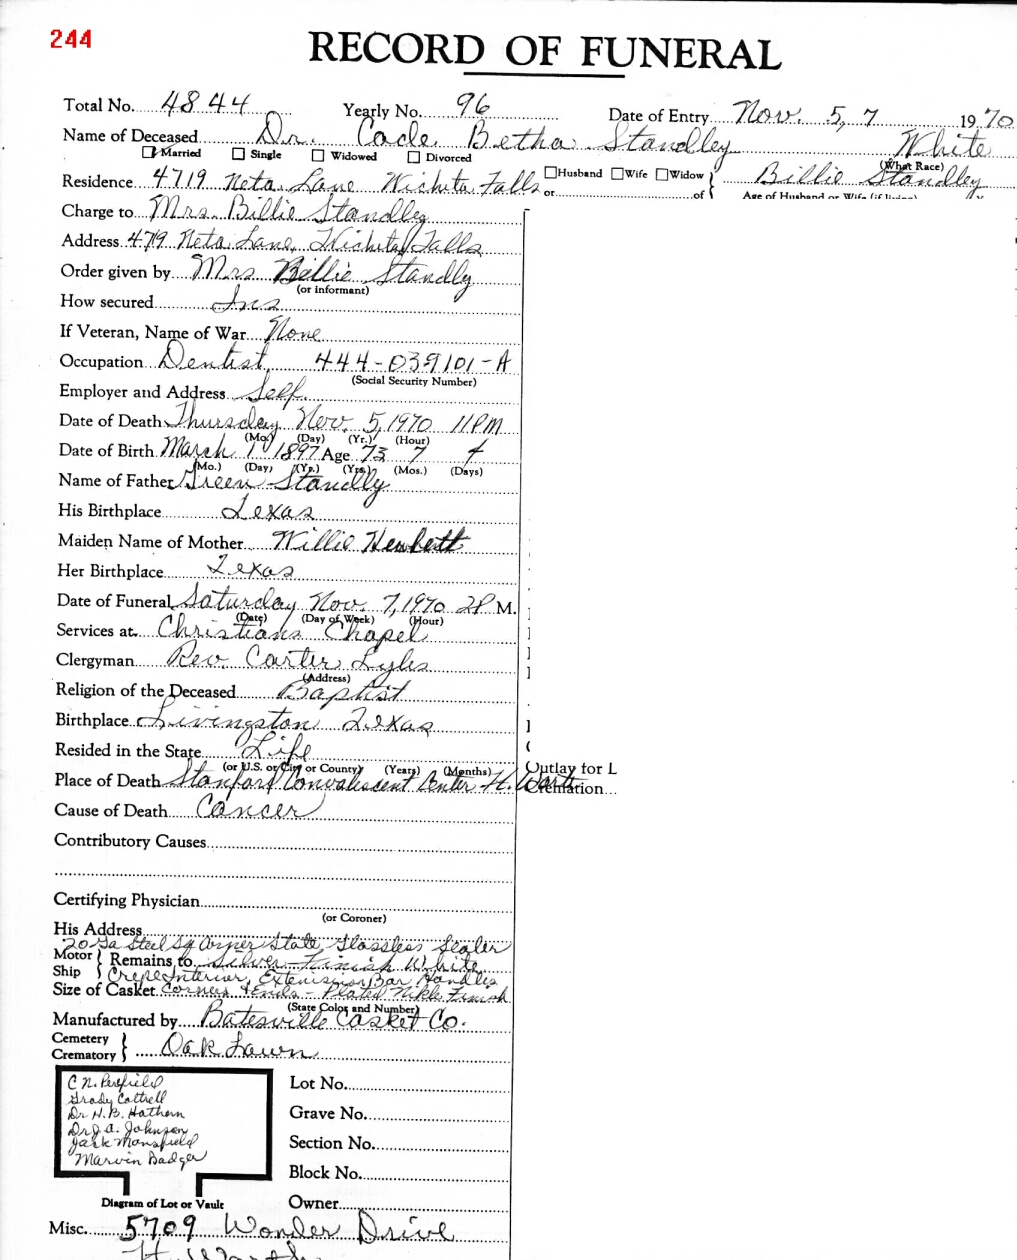 244
RECORD OF FUNERAL
Total No. 4844 Yearly No. 96 Date of Entry Nov. 5, 7 1970
Name of Deceased Dr. Cade Betha Standley White
Married Single Widowed Divorced (What Race)
Residence 4719 Neta Lane Wichita Falls Husband Wife Widow or of Billie Standley
Age of Husband or Wife (if living)
Charge to Mrs. Billie Standley
Address 4719 Neta Lane, Wichita Falls
Order given by Mrs Billie Standly
(or informant)
How secured Ins
If Veteran, Name of War None
Occupation Dentist 444-039101-A
(Social Security Number)
Employer and Address Self.
Date of Death Thursday Nov. 5, 1970 11PM
(Mo.) (Day) (Yr.) (Hour)
Date of Birth March 1 1897 Age 73 7 4
(Mo.) (Day) (Yr.) (Yrs.) (Mos.) (Days)
Name of Father Green Standlly
His Birthplace Texas
Maiden Name of Mother Willie
Her Birthplace Texas
Date of Funeral Saturday Nov. 7, 1970 2P M.
(Date) (Day of Week) (Hour)
Services at Christians Chapel
Clergyman Rev. Carter Lyles
(Address)
Religion of the Deceased Baptist
Birthplace Livingston Texas
Resided in the State Life
(or U.S. or City or County) (Years) (Months)
Outlay for L
Place of Death Stanford Convalescent Center Ft. Worth
Cremation
Cause of Death Cancer
Contributory Causes
Certifying Physician
(or Coroner)
His Address
20 Ga Steel Sq State Glassless Sealer
Motor Ship Remains to Silver Finish White
Crepe Interior, Extension Bar Handles
Size of Casket Corners & Ends - Plated Nikle Finish
(State Color and Number)
Manufactured by Batesville Casket Co.
Cemetery Crematory Oak Lawn
C N. Penfield
Grady Cottrell
Dr H. B. Hathorn
Dr J. A. Johnson
Jack Mansfield
Marvin Badger
Lot No.
Grave No.
Section No.
Block No.
Owner
Diagram of Lot or Vault
Misc. 5709 Wonder Drive
Ft. Worth